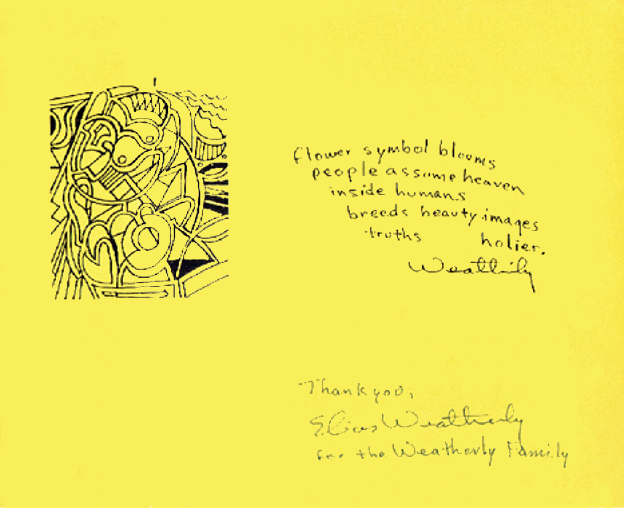 flower symbol blooms
people assume heaven
inside humans
breeds beauty images
truths holier.
Weatherly
Thank you,
Elias Weatherly
for the Weatherly Family